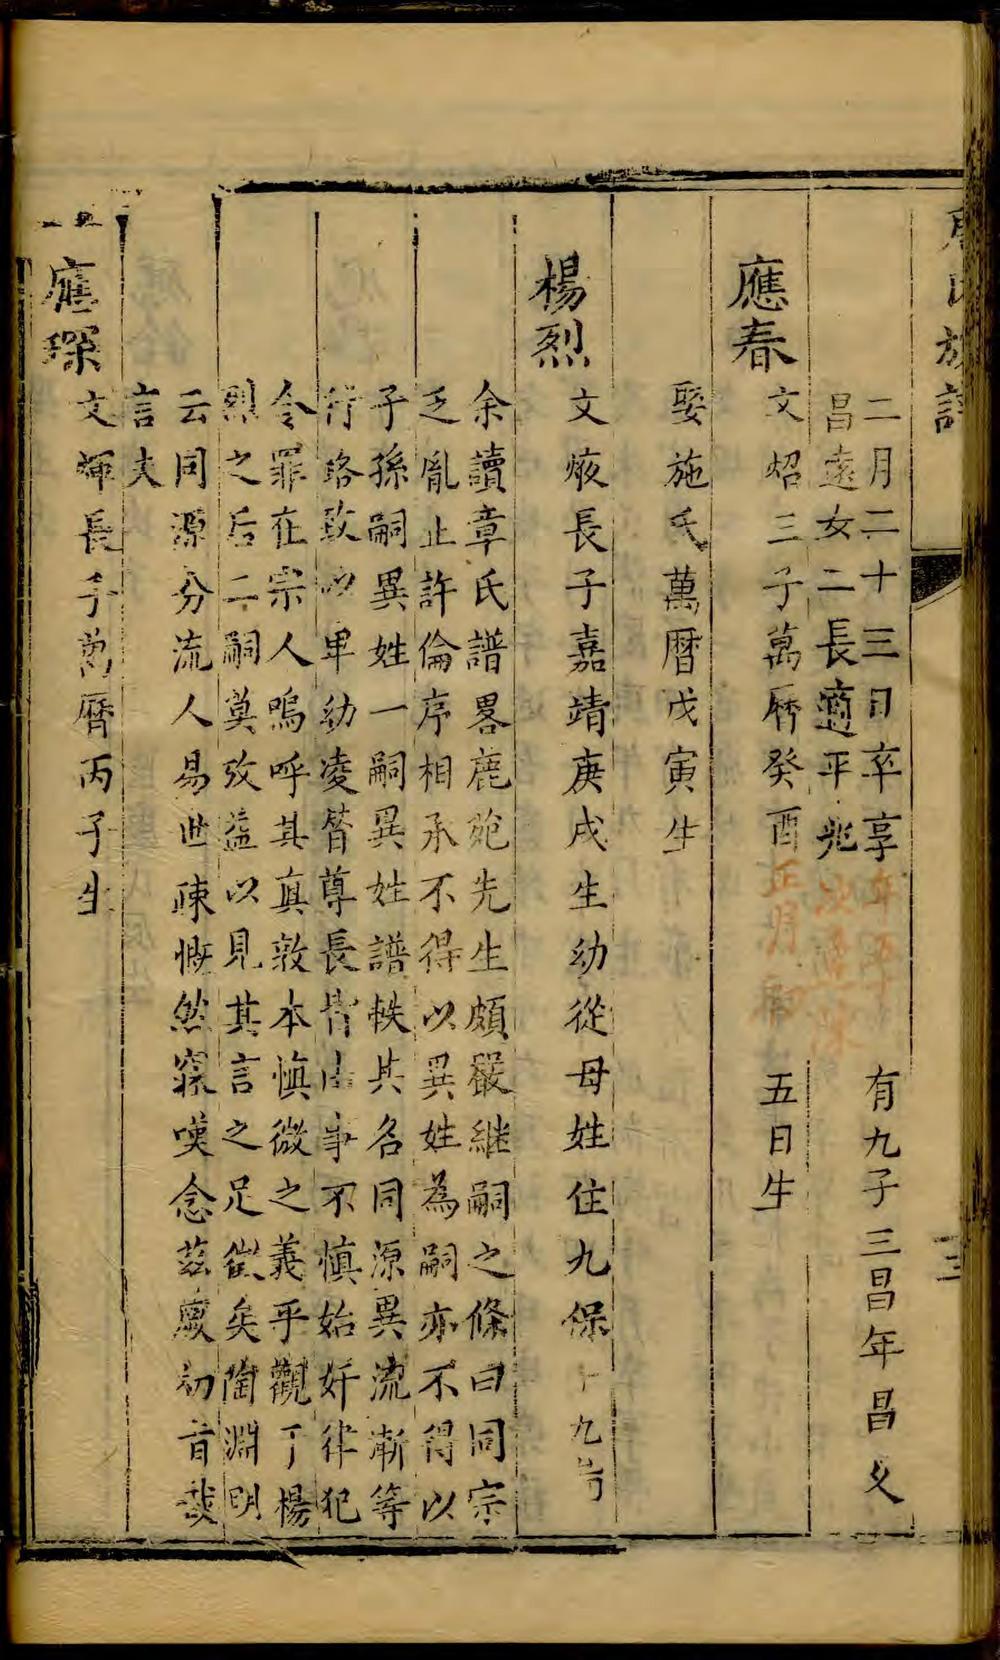 氏族譜
三
二月二十三日卒享年有九子三昌年昌文
昌遠女二長適平兆次適
應春
文炤三子萬曆癸酉正月五日生
娶施氏萬曆戊寅生
楊烈
文焲長子嘉靖庚戌生幼從母姓住九保十九啚
余讀章氏譜畧鹿苑先生頗嚴継嗣之條曰同宗
乏胤止許倫序相承不得以異姓為嗣亦不得以
子孫嗣異姓一嗣異姓譜軼其名同源異流漸等
行路致以卑幼凌督尊長皆由事不慎始奸律犯
令罪在宗人嗚呼其真敦本慎微之義乎觀丁楊
烈之后二嗣奠攷益以見其言之足徵矣陶淵明
云同源分流人易世疎慨然寤嘆念茲厥初旨哉
言夫
應琛
文煇長子萬曆丙子生